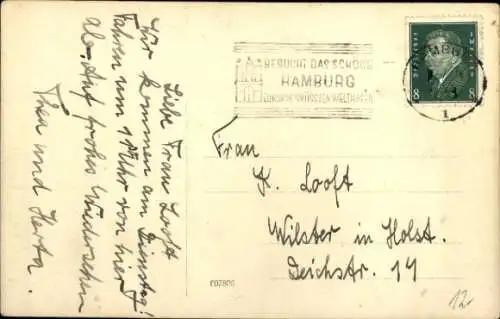 Liebe Frau Looft
Wir kommen am Dienstag!
Fahren um Uhr von hier
ab. Auf frohes Wiedersehen
Thea und Herta.
BESUCHT DAS SCHÖNE
HAMBURG
DEUTSCHES REICH
8 8
1
Frau
K. Looft
Wilster in Holst.
Deichstr. 14
12.-